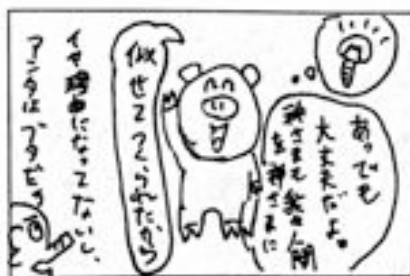 あっでも
大丈夫だよ。
神さまも 人間
を神さまに
似せてつくられたから
イヤ理由になってないし、
アンタはブタだろ